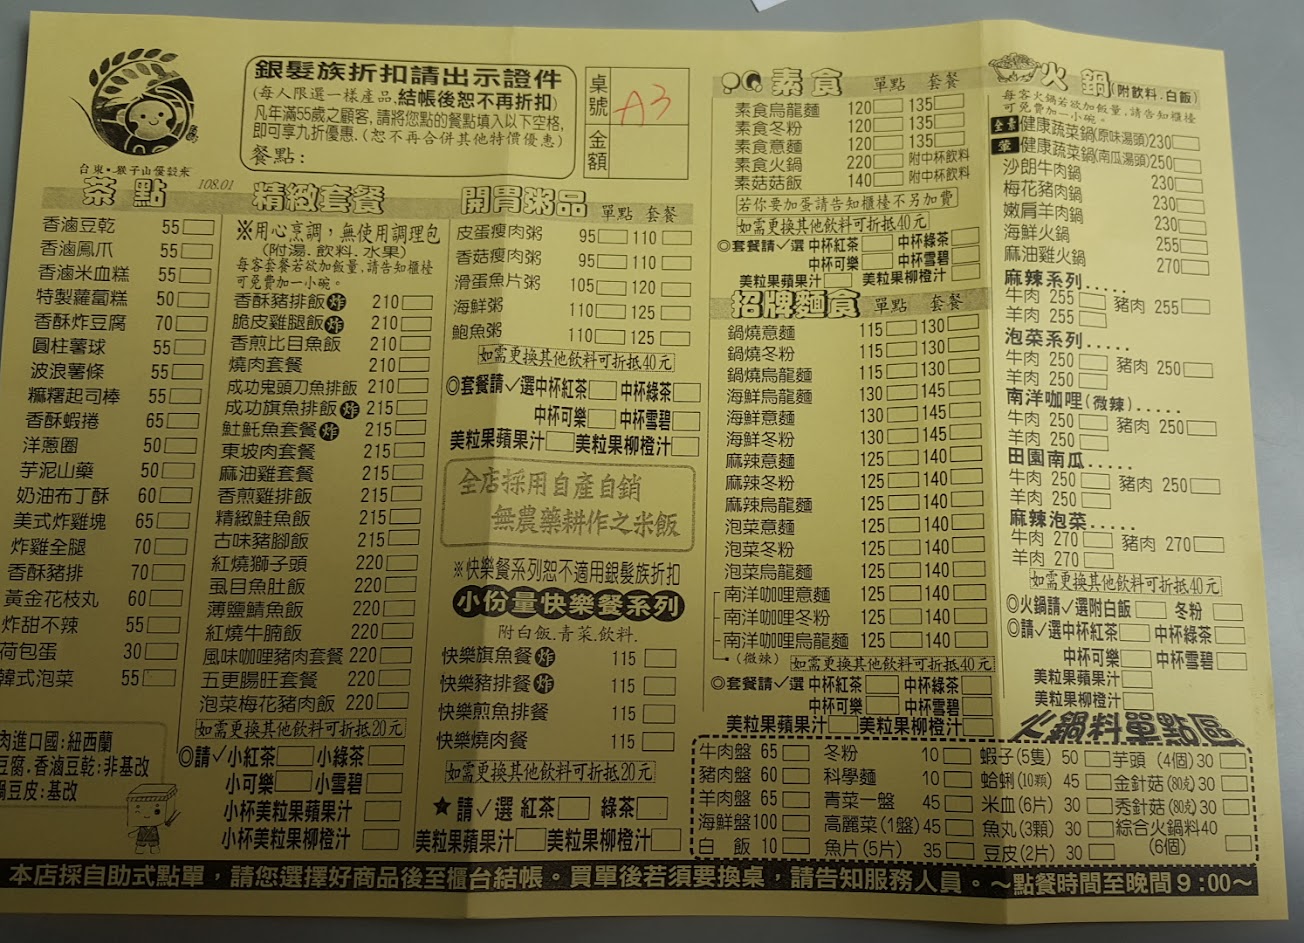 銀髮族折扣請出示證件
(每人限選一樣產品,結帳後恕不再折扣)
凡年滿55歲之顧客,請將您點的餐點填入以下空格,
即可享九折優惠.(恕不再合併其他特價優惠)
餐點:
桌號 A3
金額
108.01
茶點
香滷豆乾 55
香滷鳳爪 55
香滷米血糕 55
特製蘿蔔糕 50
香酥炸豆腐 70
圓柱薯球 55
波浪薯條 55
糰糬起司棒 55
香酥蝦捲 65
洋蔥圈 50
芋泥山藥 50
奶油布丁酥 60
美式炸雞塊 65
炸雞全腿 70
香酥豬排 70
黃金花枝丸 60
炸甜不辣 55
荷包蛋 30
韓式泡菜 55
肉進口國:紐西蘭
豆腐.香滷豆乾:非基改
豆皮:基改
精緻套餐
※用心烹調,無使用調理包
(附湯.飲料.水果)
每客套餐若欲加飯量,請告知櫃檯
可免費加一小碗。
香酥豬排飯 炸 210
脆皮雞腿飯 炸 210
香煎比目魚飯 210
燒肉套餐 210
成功鬼頭刀魚排飯 210
成功旗魚排飯 炸 215
𩵚魠魚套餐 炸 215
東坡肉套餐 215
麻油雞套餐 215
香煎雞排飯 215
精緻鮭魚飯 215
古味豬腳飯 215
紅燒獅子頭 220
虱目魚肚飯 220
薄鹽鯖魚飯 220
紅燒牛腩飯 220
風味咖哩豬肉套餐 220
五更腸旺套餐 220
泡菜梅花豬肉飯 220
如需更換其他飲料可折抵20元
◎請✓小紅茶 小綠茶
小可樂 小雪碧
小杯美粒果蘋果汁
小杯美粒果柳橙汁
開胃粥品 單點 套餐
皮蛋瘦肉粥 95 110
香菇瘦肉粥 95 110
滑蛋魚片粥 105 120
海鮮粥 110 125
鮑魚粥 110 125
如需更換其他飲料可折抵40元
◎套餐請✓選中杯紅茶 中杯綠茶
中杯可樂 中杯雪碧
美粒果蘋果汁 美粒果柳橙汁
全店採用自產自銷
無農藥耕作之米飯
※快樂餐系列恕不適用銀髮族折扣
小份量快樂餐系列
附白飯.青菜.飲料.
快樂旗魚餐 炸 115
快樂豬排餐 炸 115
快樂煎魚排餐 115
快樂燒肉餐 115
如需更換其他飲料可折抵20元
★請✓選 紅茶 綠茶
美粒果蘋果汁 美粒果柳橙汁
素食 單點 套餐
素食烏龍麵 120 135
素食冬粉 120 135
素食意麵 120 135
素食火鍋 220 附中杯飲料
素菇菇飯 140 附中杯飲料
若你要加蛋請告知櫃檯不另加費
如需更換其他飲料可折抵40元
◎套餐請✓選 中杯紅茶 中杯綠茶
中杯可樂 中杯雪碧
美粒果蘋果汁 美粒果柳橙汁
招牌麵食 單點 套餐
鍋燒意麵 115 130
鍋燒冬粉 115 130
鍋燒烏龍麵 115 130
海鮮烏龍麵 130 145
海鮮意麵 130 145
海鮮冬粉 130 145
麻辣意麵 125 140
麻辣冬粉 125 140
麻辣烏龍麵 125 140
泡菜意麵 125 140
泡菜冬粉 125 140
泡菜烏龍麵 125 140
南洋咖哩意麵 125 140
南洋咖哩冬粉 125 140
南洋咖哩烏龍麵 125 140
(微辣) 如需更換其他飲料可折抵40元
◎套餐請✓選 中杯紅茶 中杯綠茶
中杯可樂 中杯雪碧
美粒果蘋果汁 美粒果柳橙汁
火鍋(附飲料.白飯)
每客火鍋若欲加飯量,請告知櫃檯
可免費加一小碗。
全素 健康蔬菜鍋(原味湯頭)230
葷 健康蔬菜鍋(南瓜湯頭)250
沙朗牛肉鍋 230
梅花豬肉鍋 230
嫩肩羊肉鍋 230
海鮮火鍋 255
麻油雞火鍋 270
麻辣系列.....
牛肉 255 豬肉 255
羊肉 255
泡菜系列.....
牛肉 250 豬肉 250
羊肉 250
南洋咖哩(微辣).....
牛肉 250 豬肉 250
羊肉 250
田園南瓜.....
牛肉 250 豬肉 250
羊肉 250
麻辣泡菜.....
牛肉 270 豬肉 270
羊肉 270
如需更換其他飲料可折抵40元
◎火鍋請✓選附白飯 冬粉
◎請✓選中杯紅茶 中杯綠茶
中杯可樂 中杯雪碧
美粒果蘋果汁
美粒果柳橙汁
火鍋料單點區
牛肉盤 65 冬粉 10 蝦子(5隻) 50 芋頭(4個) 30
豬肉盤 60 科學麵 10 蛤蜊(10顆) 45 金針菇(80克) 30
羊肉盤 65 青菜一盤 45 米血(6片) 30 秀針菇(80克) 30
海鮮盤 100 高麗菜(1盤) 45 魚丸(3顆) 30 綜合火鍋料 40
白飯 10 魚片(5片) 35 豆皮(2片) 30 (6個)
本店採自助式點單,請您選擇好商品後至櫃台結帳。買單後若須要換桌,請告知服務人員。~點餐時間至晚間9:00~